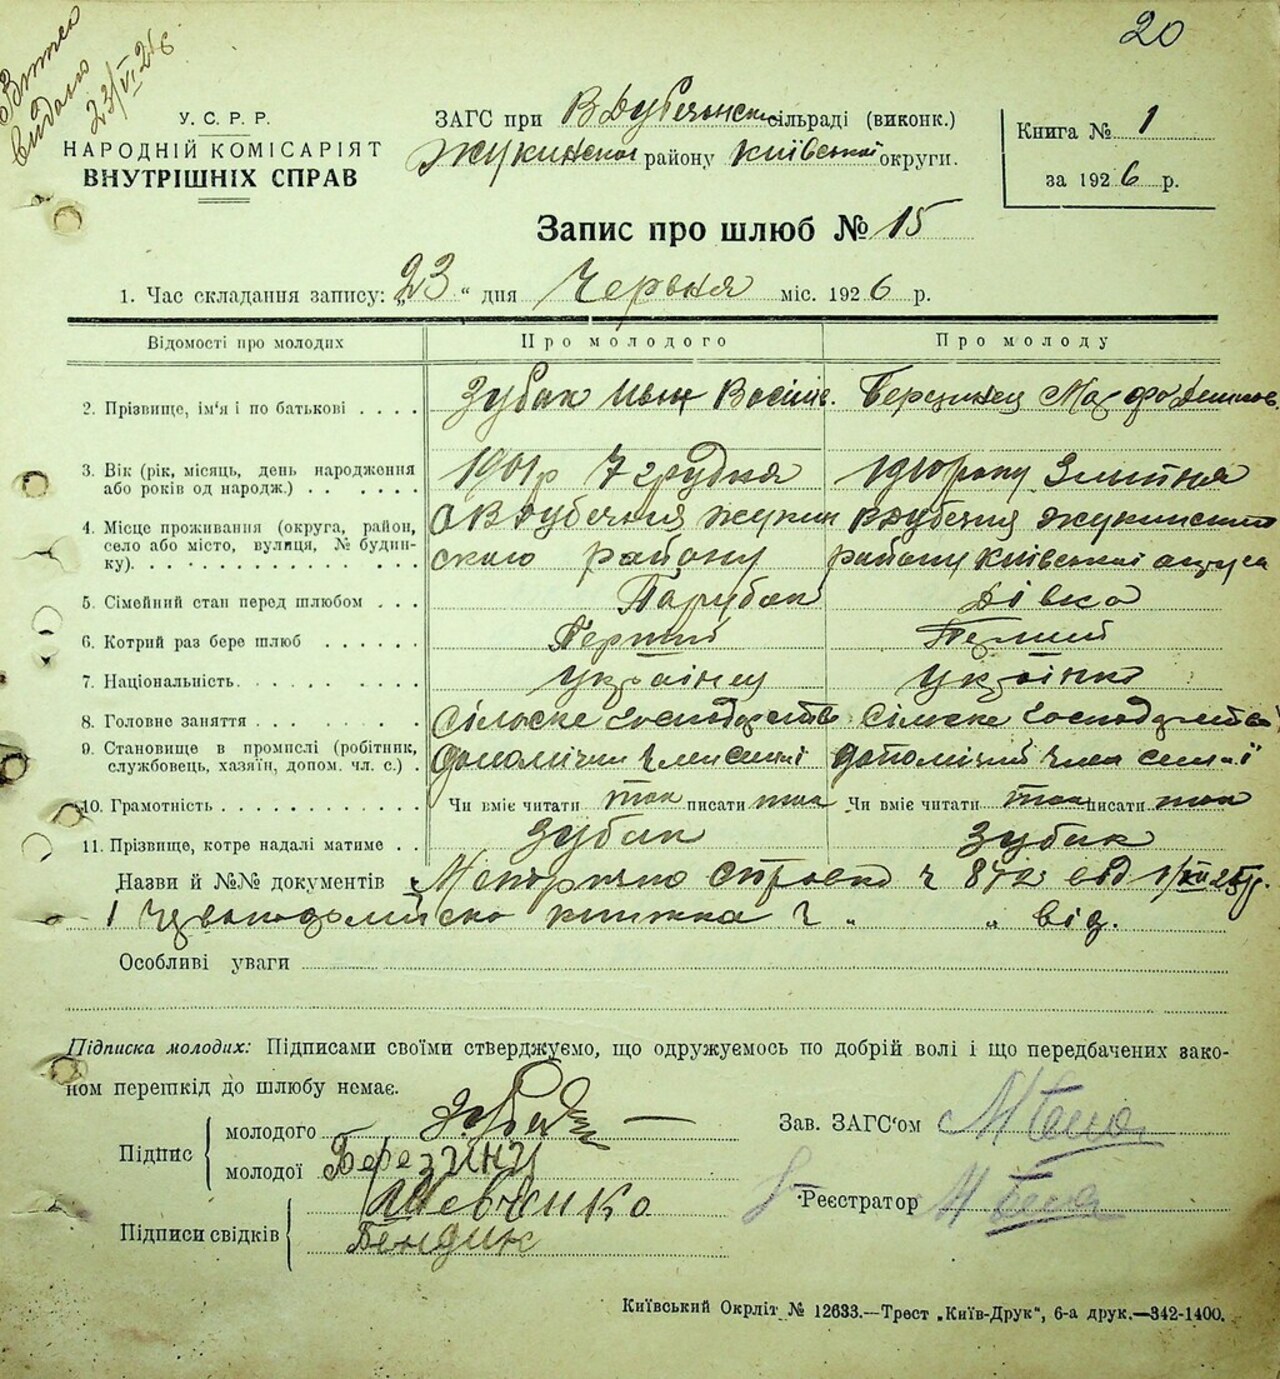 20
Витяг
видано
23/VI 26
У. С. Р. Р.
НАРОДНІЙ КОМІСАРІЯТ
ВНУТРІШНІХ СПРАВ
ЗАГС при В Дубечанск сільраді (виконк.)
Жукинской району Київської округи.
Книга № 1
за 1926 р.
Запис про шлюб № 15
1. Час складання запису: „23“ дня Червня міс. 1926 р.
Відомості про молодих
Про молодого
Про молоду
2. Прізвище, ім‘я і по батькові . . . .
Зубак Иван Васілів.
Березинец
3. Вік (рік, місяць, день народження
або років од народж.) . . . . . .
1901р 7 грудня
1910 року
4. Місце проживання (округа, район,
село або місто, вулиця, № будин-
ку). . . . . . . . . . . . . . .
В Дубечня Жукин
ского району
В Дубечня Жукинского
району Київської округа
5. Сімейний стан перед шлюбом . . .
Парубак
Дівка
6. Котрий раз бере шлюб . . . . . .
Перший
Перший
7. Національність. . . . . . . . . .
Українец
Українка
8. Головне заняття . . . . . . . . .
Сільске господарство
Сільске господарство
9. Становище в промислі (робітник,
службовець, хазяїн, допом. чл. с.) .
допомічни член симї
допомічний член симї
10. Грамотність . . . . . . . . . . .
Чи вміє читати так писати так
Чи вміє читати так писати так
11. Прізвище, котре надалі матиме . .
Зубак
Зубак
Назви й №№ документів Метрична ч 872 від 1/XII 25р.
1 книжка ч „ „ від.
Особливі уваги
Підписка молодих: Підписами своїми стверджуємо, що одружуємось по добрій волі і що передбачених зако-
ном перешкід до шлюбу немає.
Підпис
молодого Зубак
молодої Березину
Підписи свідків
Шевченко
Бендик
Зав. ЗАГС‘ом
Реєстратор
Київський Окрліт № 12633.—Трест „Київ-Друк“, 6-а друк.—342-1400.